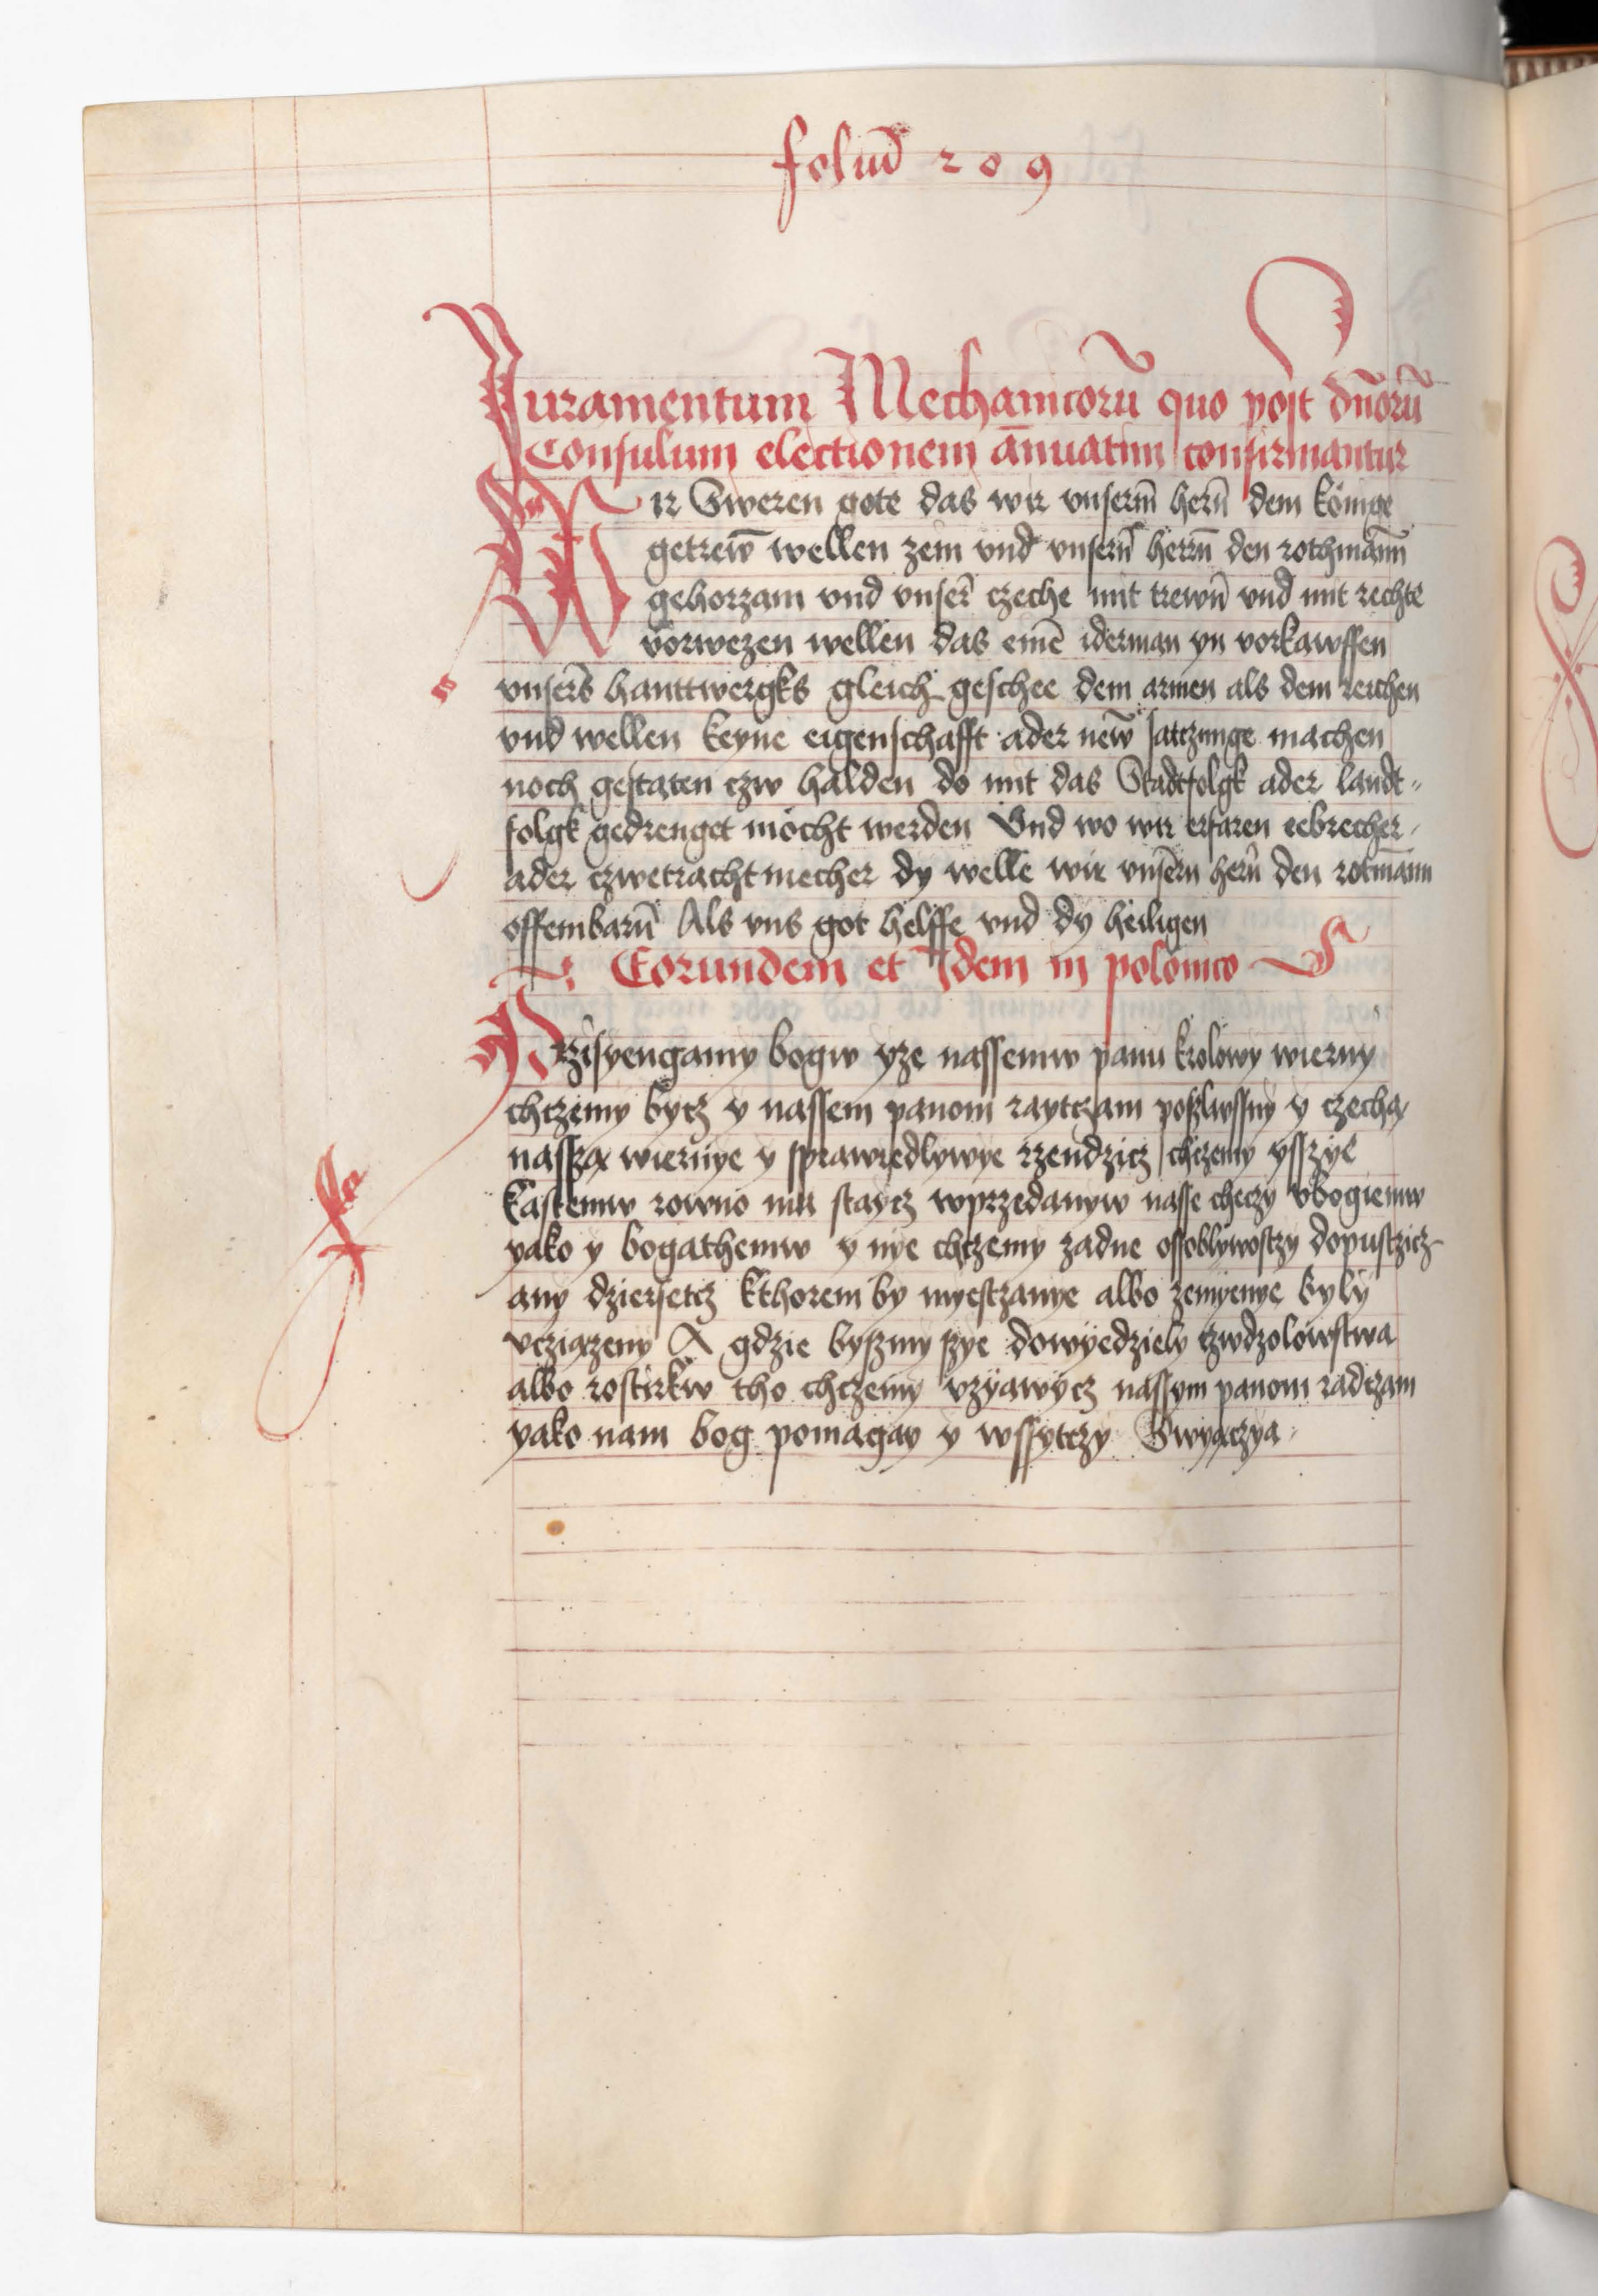 foliū 209
Juramentum Mechanicorū quo post dn̄orū
Consulum electionem ānuatim confirmantur
Wir Sweren gote das wir vnserm̄ herñ dem könige
getrew̄ wellen zein vnd vnserñ herrñ den rothmānn
gehorzam vnd vnser̄ czeche mit trewñ vnd mit rechte
vorwezen wellen das einē iderman yn vorkawffen
vnsers̄ hanttwergks gleich geschee dem armen als dem reichen
vnd wellen keyne eigenschafft ader new̄ satczunge machen
noch gestaten czw halden do mit das Stadtfolgk ader landt„
folgk gedrenget möcht werden Vnd wo wir erfaren eebrecher
ader czwetrachtmecher dy welle wir vnsērn herñ den rotmānn
offembarñ Als vns got helffe vnd dy heiligen
Eorundem et Idem in polonico
Przisyengamy bogw yze nassemw panu krolowy wierny
chczemy bycz y nassem panom raytczam poszlwssny y czechą
nasszą wiernye y sprawyedlywye rzendzicz chczemy ysszye
kastemw rowno ma staycz wprzedanyw nasse checzy vbogiemw
yako y bogathemw y nye chczemy zadne ossoblywostzy dopustzicz
any dziersetcz kthorem by myestzanye albo zemyenye byly
vcziązeny A gdzie byszmy szye dowyedziely czwdzolowstwa
albo rostirkw tho chczemy vzyawycz nassym panom radczam
yako nam bog pomagay y wssytczy Swyączya